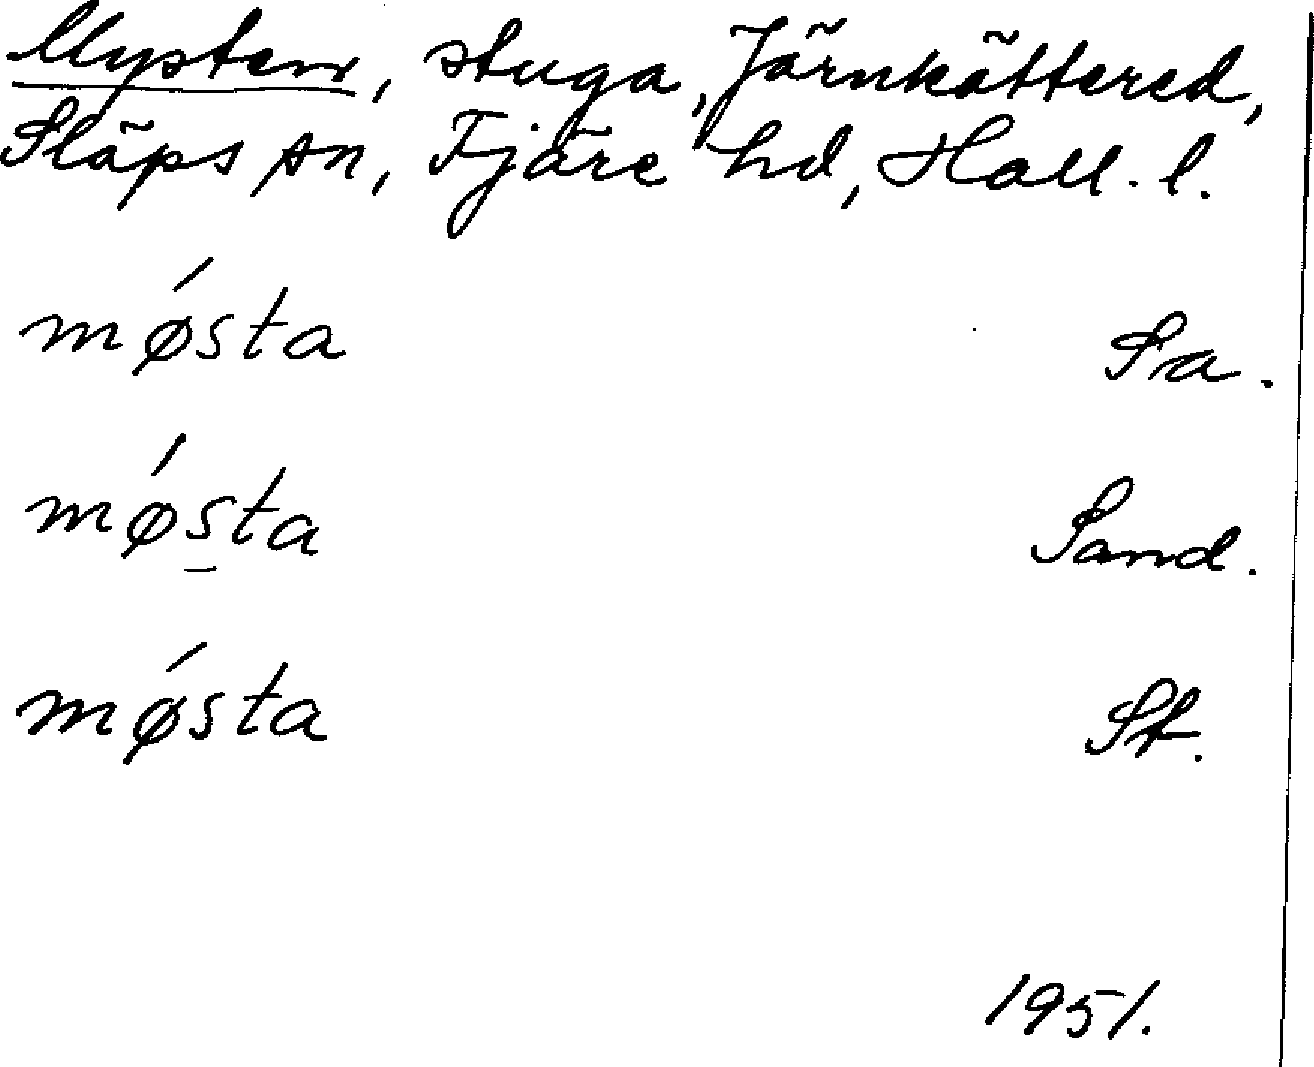 Mysten, stuga, Järnkättered,
Släps sn, Fjäre hd, Hall. l.
mǿsta Sa.
mǿs̱ta Sand.
mǿsta St.
1951.